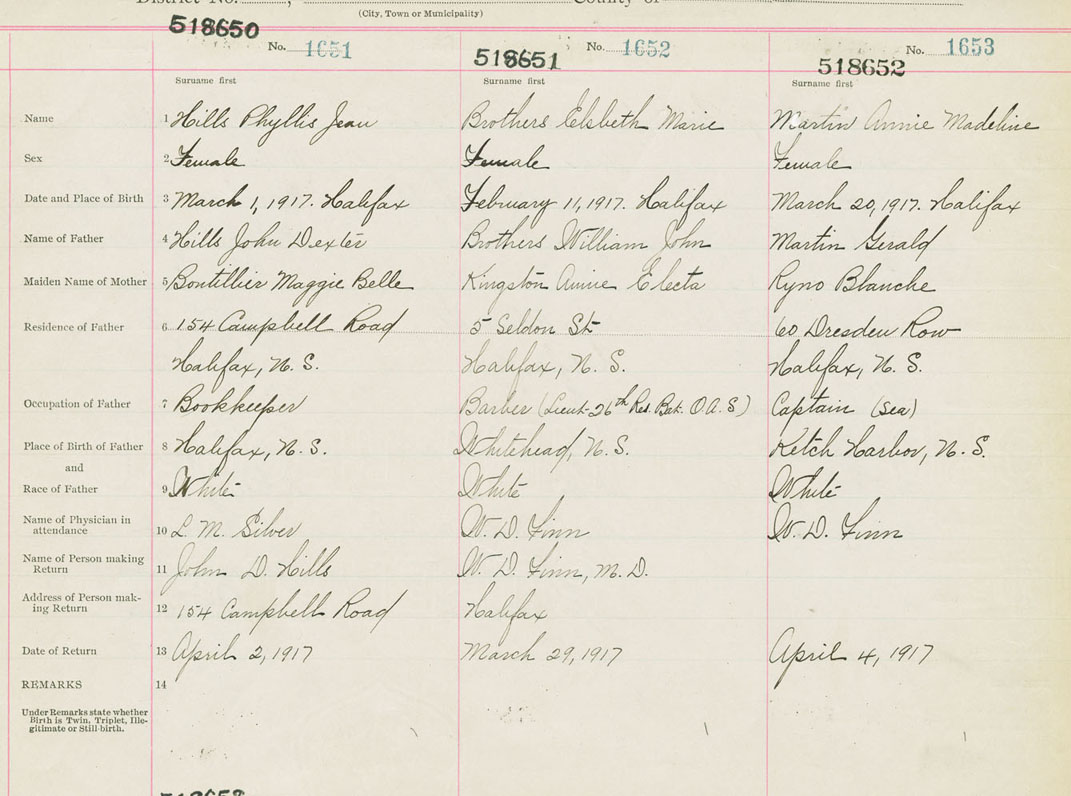 District No. , County of
(City, Town or Municipality)
518650 518651 518652
No. 1651 No. 1652 No. 1653
Surname first Surname first Surname first
Name 1 Hills Phyllis Jean Brothers Elsbeth Marie Martin Annie Madeline
Sex 2 Female Female Female
Date and Place of Birth 3 March 1, 1917. Halifax February 11, 1917. Halifax March 20, 1917. Halifax
Name of Father 4 Hills John Dexter Brothers William John Martin Gerald
Maiden Name of Mother 5 Boutillier Maggie Belle Kingston Annie Electa Ryno Blanche
Residence of Father 6 154 Campbell Road 5 Seldon St 60 Dresden Row
Halifax, N. S. Halifax, N. S. Halifax, N. S.
Occupation of Father 7 Bookkeeper Barber (Lieut- 26th Res. Bat. O. A. S) Captain (sea)
Place of Birth of Father 8 Halifax, N. S. Whitehead, N. S. Ketch Harbor, N. S.
and
Race of Father 9 White White White
Name of Physician in
attendance 10 L. M. Silver W. D. Finn W. D. Finn
Name of Person making
Return 11 John D. Hills W. D. Finn, M. D.
Address of Person mak-
ing Return 12 154 Campbell Road Halifax
Date of Return 13 April 2, 1917 March 29, 1917 April 4, 1917
REMARKS 14
Under Remarks state whether
Birth is Twin, Triplet, Ille-
gitimate or Still-birth.